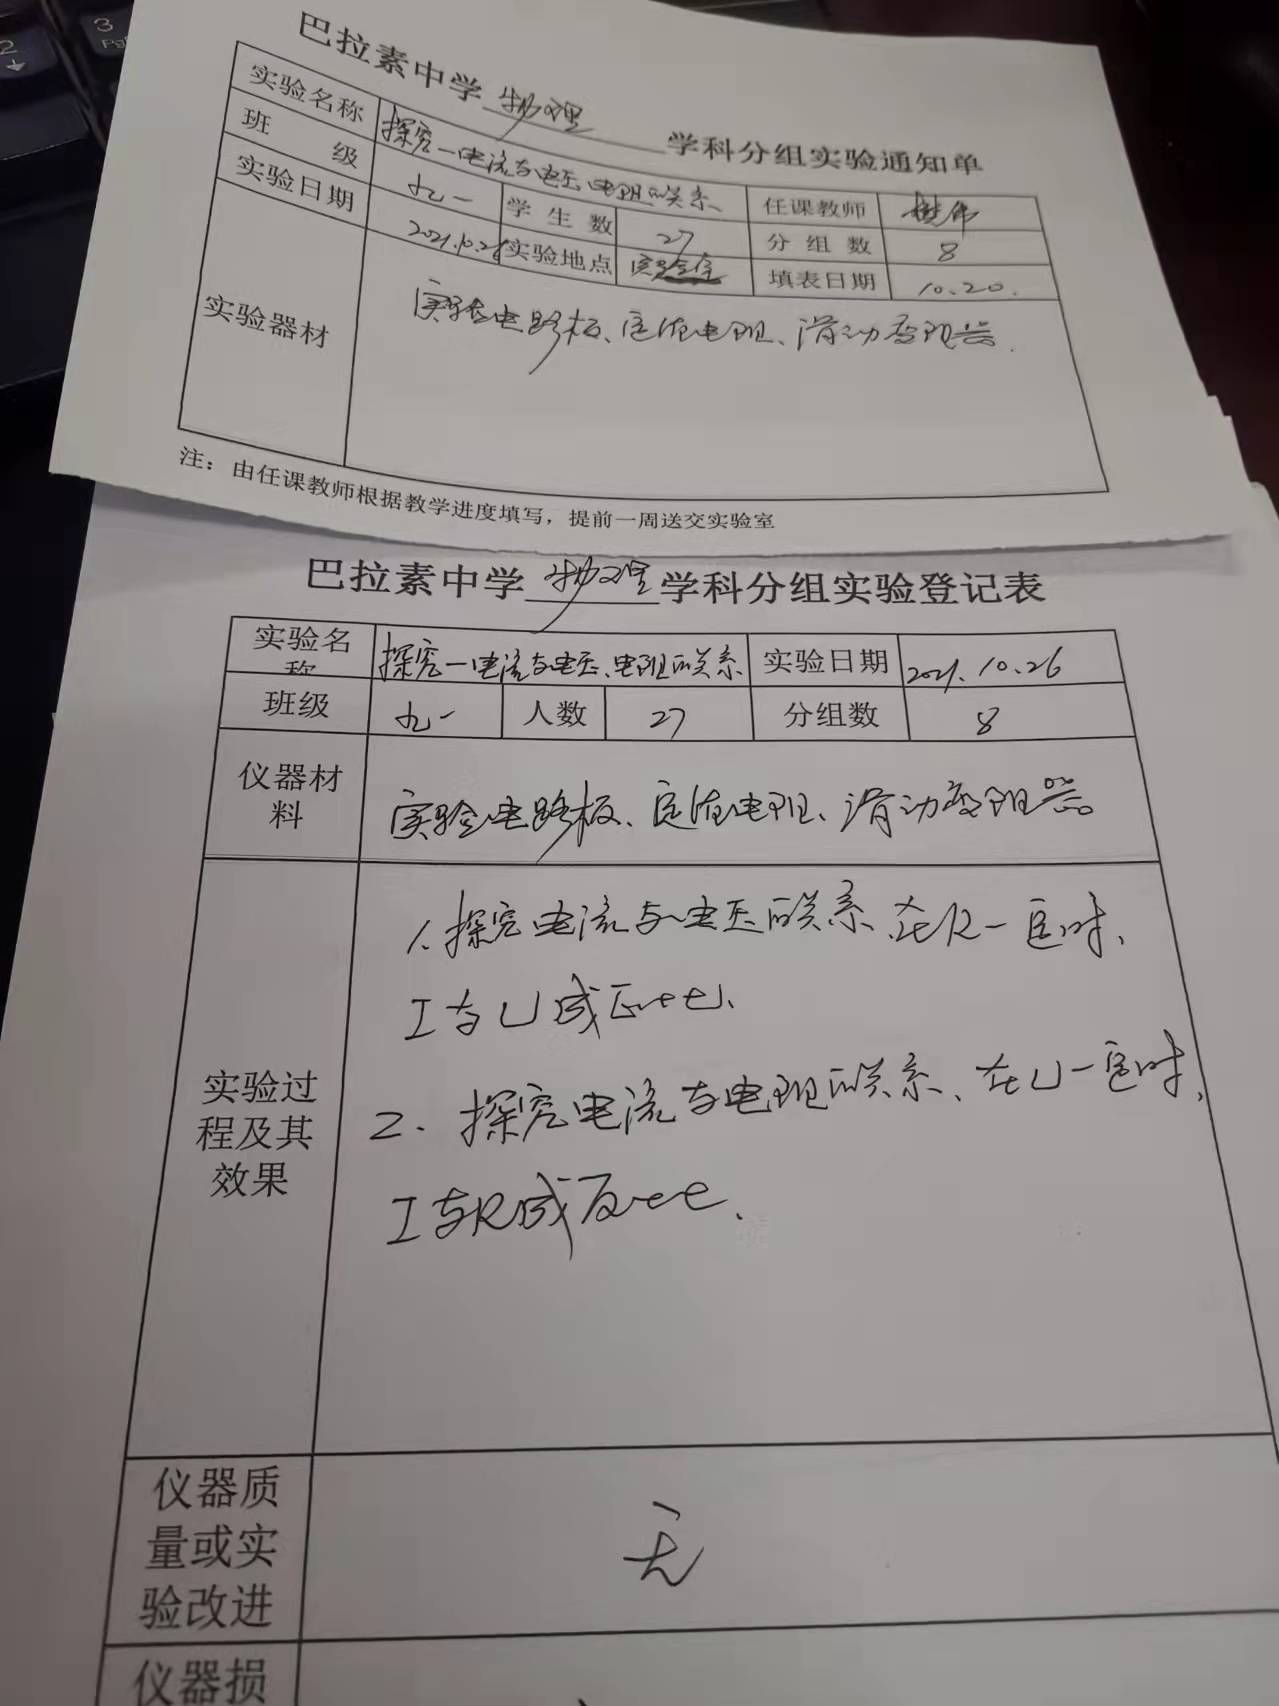 2
3
巴拉素中学 物理 学科分组实验通知单
实验名称 探究一电流与电压、电阻的关系 任课教师
班 级 九一 学生数 27 分组数 8
实验日期 2021.10.26 实验地点 实验室 填表日期 10.20.
实验器材 实验电路板、定值电阻、滑动变阻器.
注：由任课教师根据教学进度填写，提前一周送交实验室
巴拉素中学 物理 学科分组实验登记表
实验名称 探究一电流与电压、电阻的关系 实验日期 2021.10.26
班级 九一 人数 27 分组数 8
仪器材料 实验电路板、定值电阻、滑动变阻器
实验过程及其效果
1.探究电流与电压的关系.在R一定时，
I与U成正比.
2.探究电流与电阻的关系、在U一定时，
I与R成反比.
仪器质量或实验改进 无
仪器损